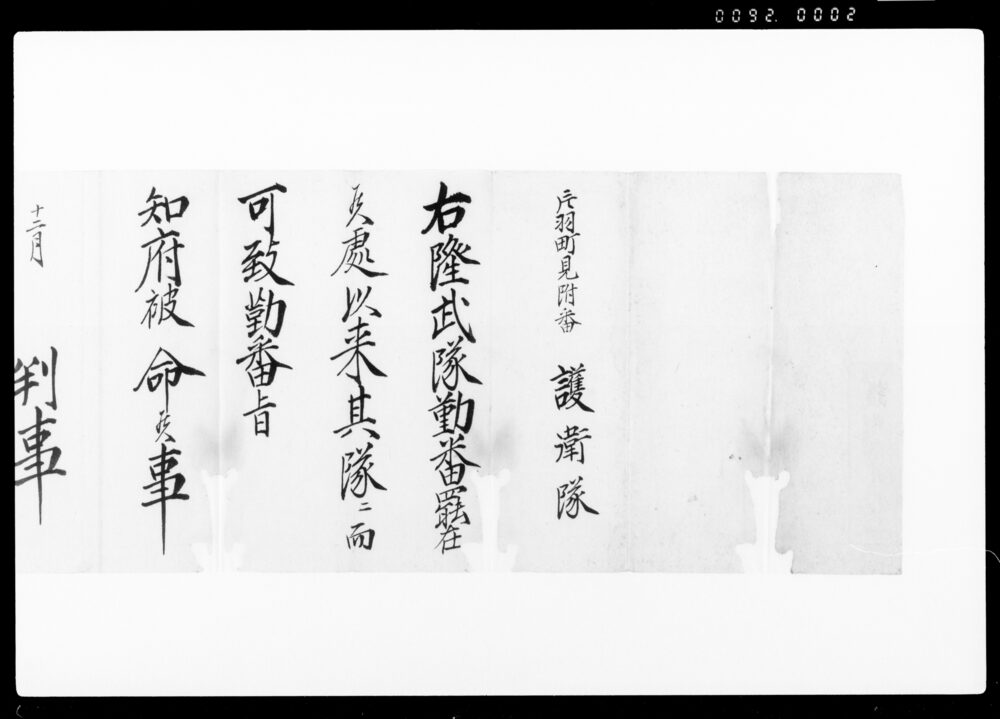 0092. 0002
片羽町見附番
護衛隊
右隆武隊勤番罷在
候處以来其隊ニ而
可致勤番旨
知府被 命候事
十二月
判事